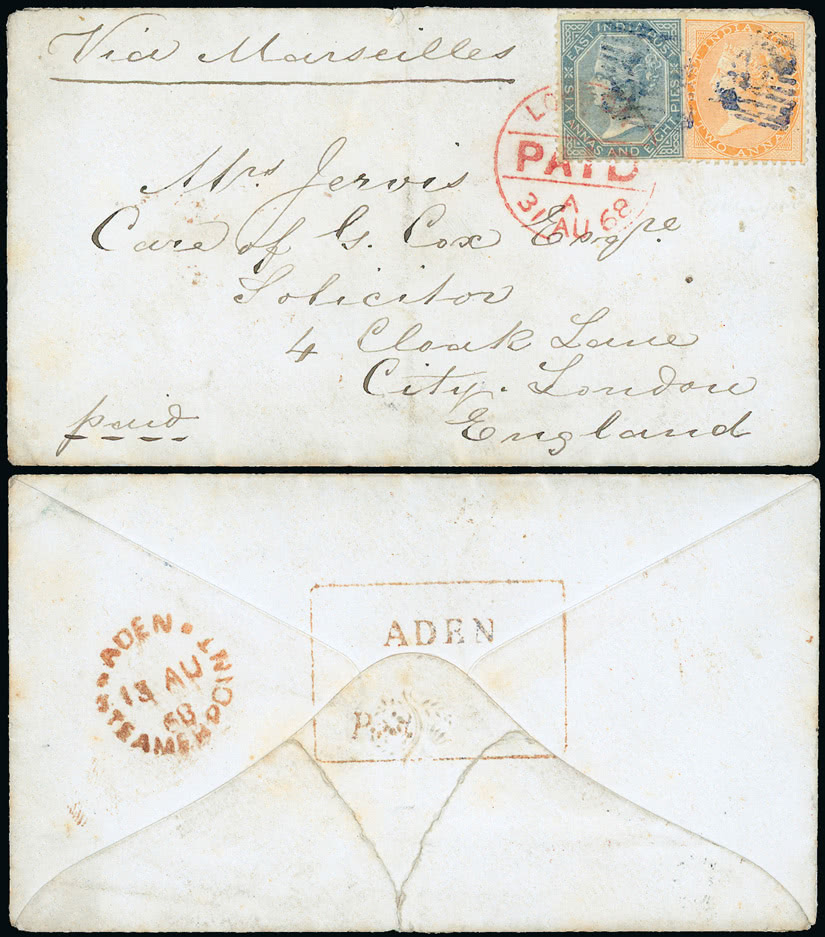 Via Marseilles
EAST INDIA POSTAGE
SIX ANNAS AND EIGHT PIES
EAST INDIA
TWO ANNAS
LO
PAID
A
31 AU 68
Mrs Jervis
Care of G. Cox Esqre
Solicitor
4 Cloak Lane
City. London
England
paid
ADEN
STEAMER POINT
13 AU
68
ADEN